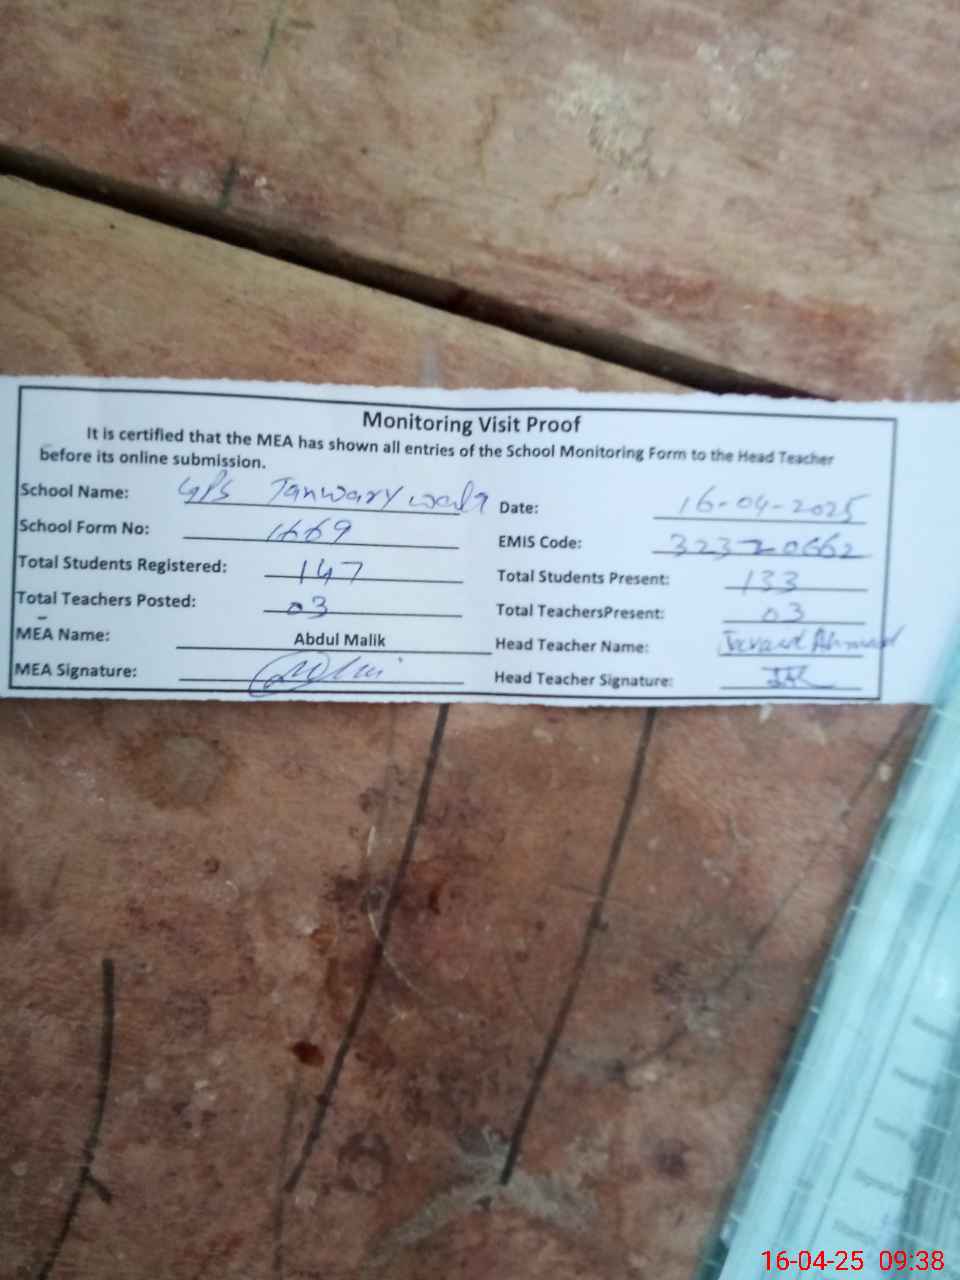 Monitoring Visit Proof
It is certified that the MEA has shown all entries of the School Monitoring Form to the Head Teacher
before its online submission.
School Name: GPS
Date: 16-04-2025
School Form No: 1669
EMIS Code: 32320662
Total Students Registered: 147
Total Students Present: 133
Total Teachers Posted: 03
Total TeachersPresent: 03
MEA Name: Abdul Malik
Head Teacher Name: Ahmad
MEA Signature:
Head Teacher Signature:
16-04-25 09:38